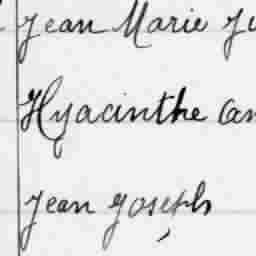 Jean Marie Ju
Hyacinthe An
Jean Joseph